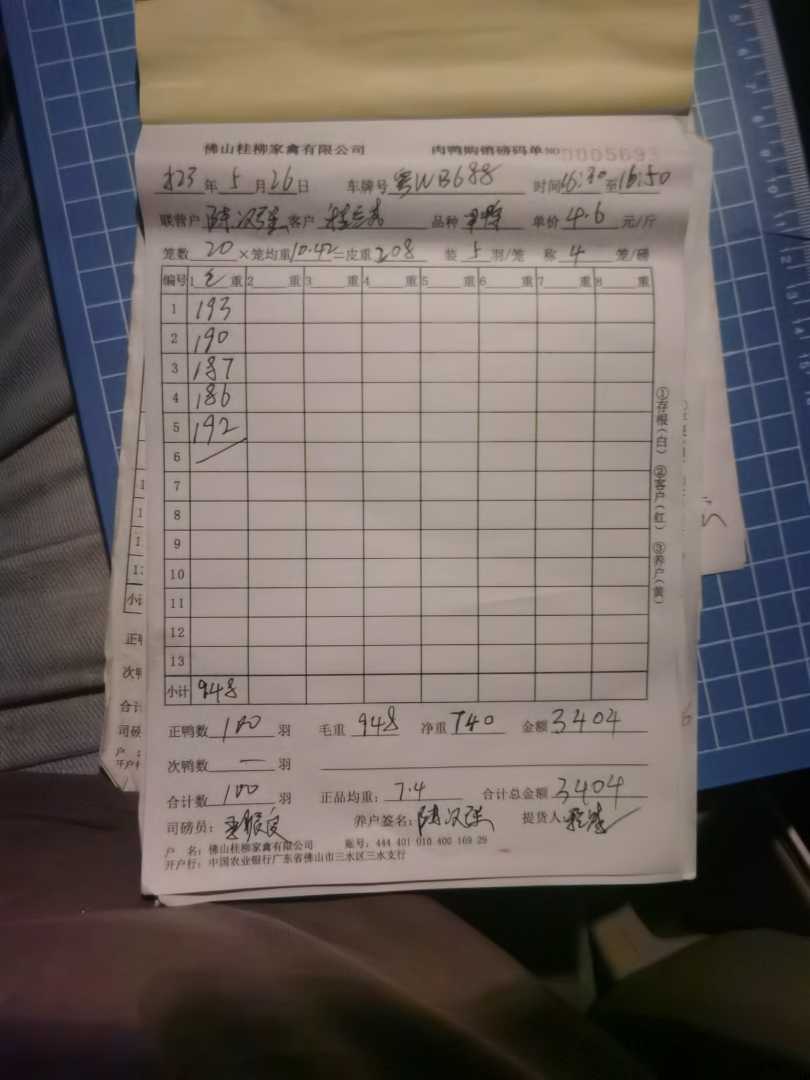 佛山桂柳家禽有限公司 肉鸭购销磅码单 NO 0005693
年 5 月 26 日 车牌号 粤WB688 时间 16:30 至 16:50
联营户 陈汉强 客户 品种 单价 4.6 元/斤
笼数 20 ×笼均重 10.42 =皮重 208 装 5 羽/笼 称 4 笼/磅
编号 1 毛 重 2 重 3 重 4 重 5 重 6 重 7 重 8 重
1 193
2 190
3 187
4 186
5 192
6
7
8
9
10
11
12
13
小计 948
①存根(白) ②客户(红) ③养户(黄)
正鸭数 100 羽 毛重 948 净重 740 金额 3404
次鸭数 一 羽
合计数 100 羽 正品均重: 7.4 合计总金额 3404
司磅员: 养户签名: 陈汉强 提货人
户 名: 佛山桂柳家禽有限公司 账号: 444 401 010 400 169 29
开户行: 中国农业银行广东省佛山市三水区三水支行